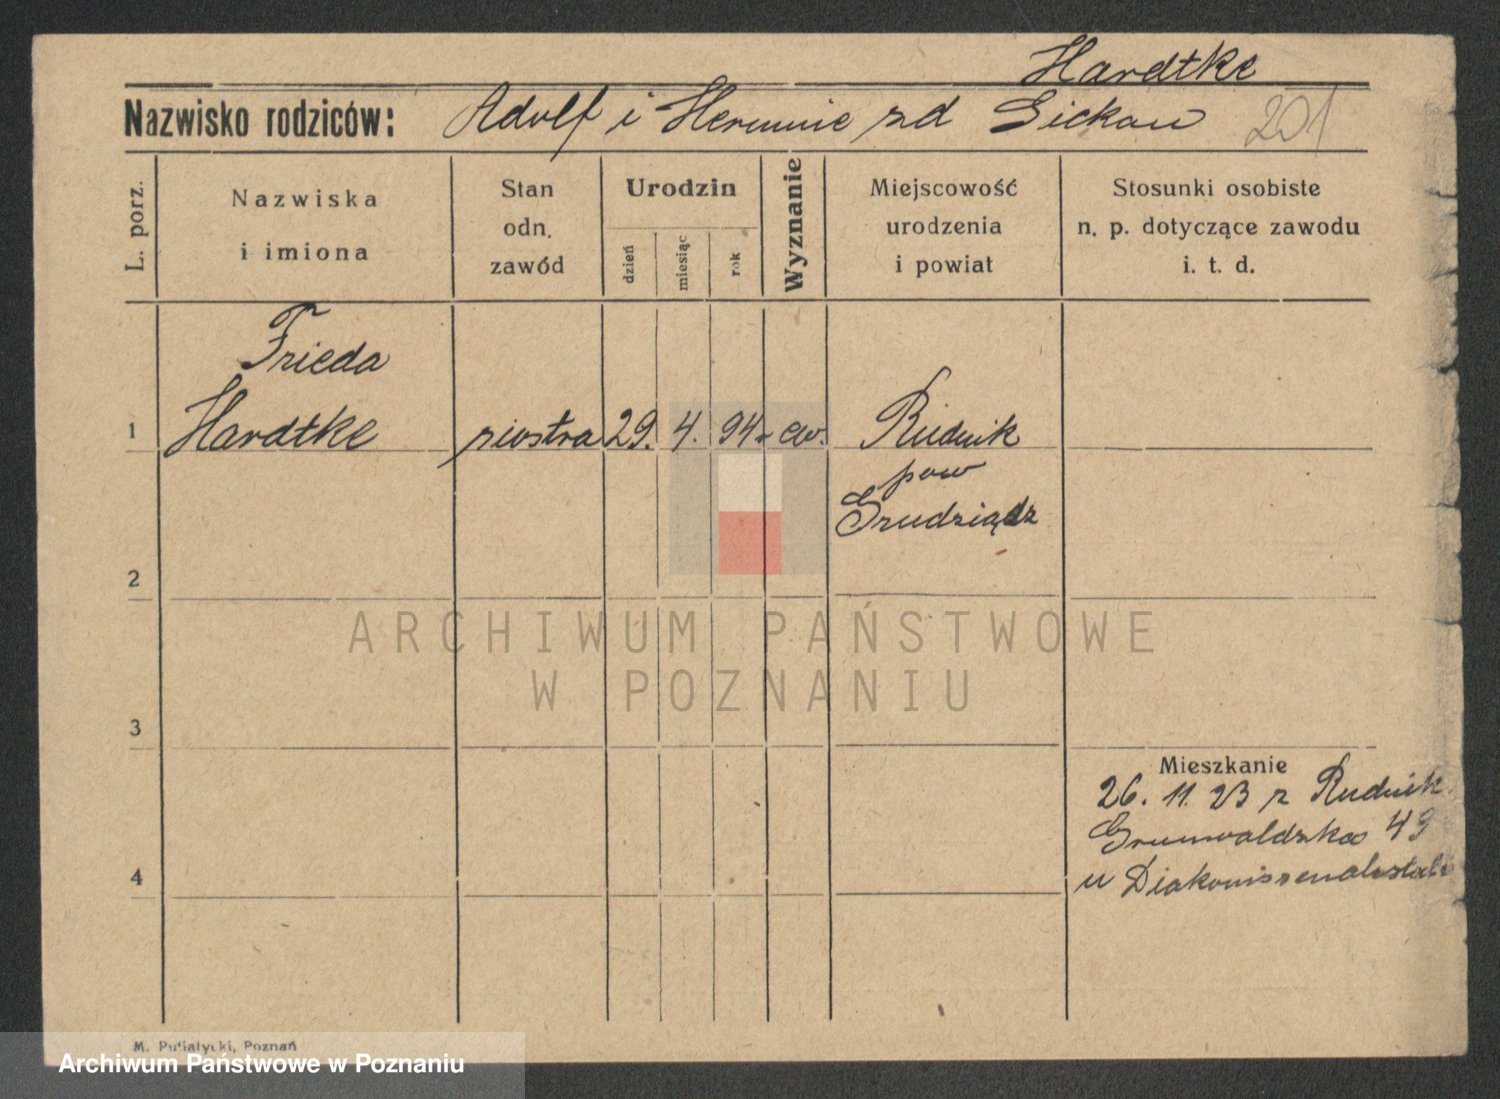 Hardtke
Nazwisko rodziców: Adolf i Hermine zd Gickau 201
L. porz.
Nazwiska
i imiona
Stan
odn.
zawód
Urodzin
dzień
miesiąc
rok
Wyznanie
Miejscowość
urodzenia
i powiat
Stosunki osobiste
n. p. dotyczące zawodu
i. t. d.
Frieda
1 Hardtke siostra 29. 4. 94. ew. Rudnik
pow
Grudziądz
2
3
4
Mieszkanie
26. 11. 23 z Rudnik
Grunwaldzka 49
u Diakonissenanstalt
M. Putiatycki, Poznań
ARCHIWUM PAŃSTWOWE
W POZNANIU
Archiwum Państwowe w Poznaniu